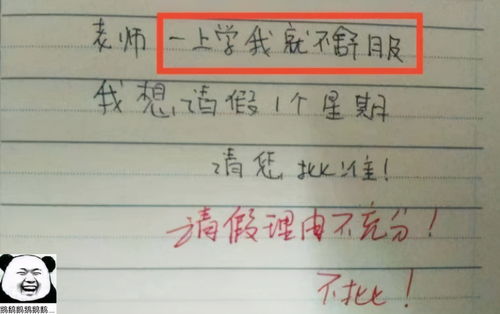 老师 一上学我就不舒服
我想请假1个星期
请您批准!
请假理由不充分!
不批!
鹅鹅鹅鹅鹅鹅...